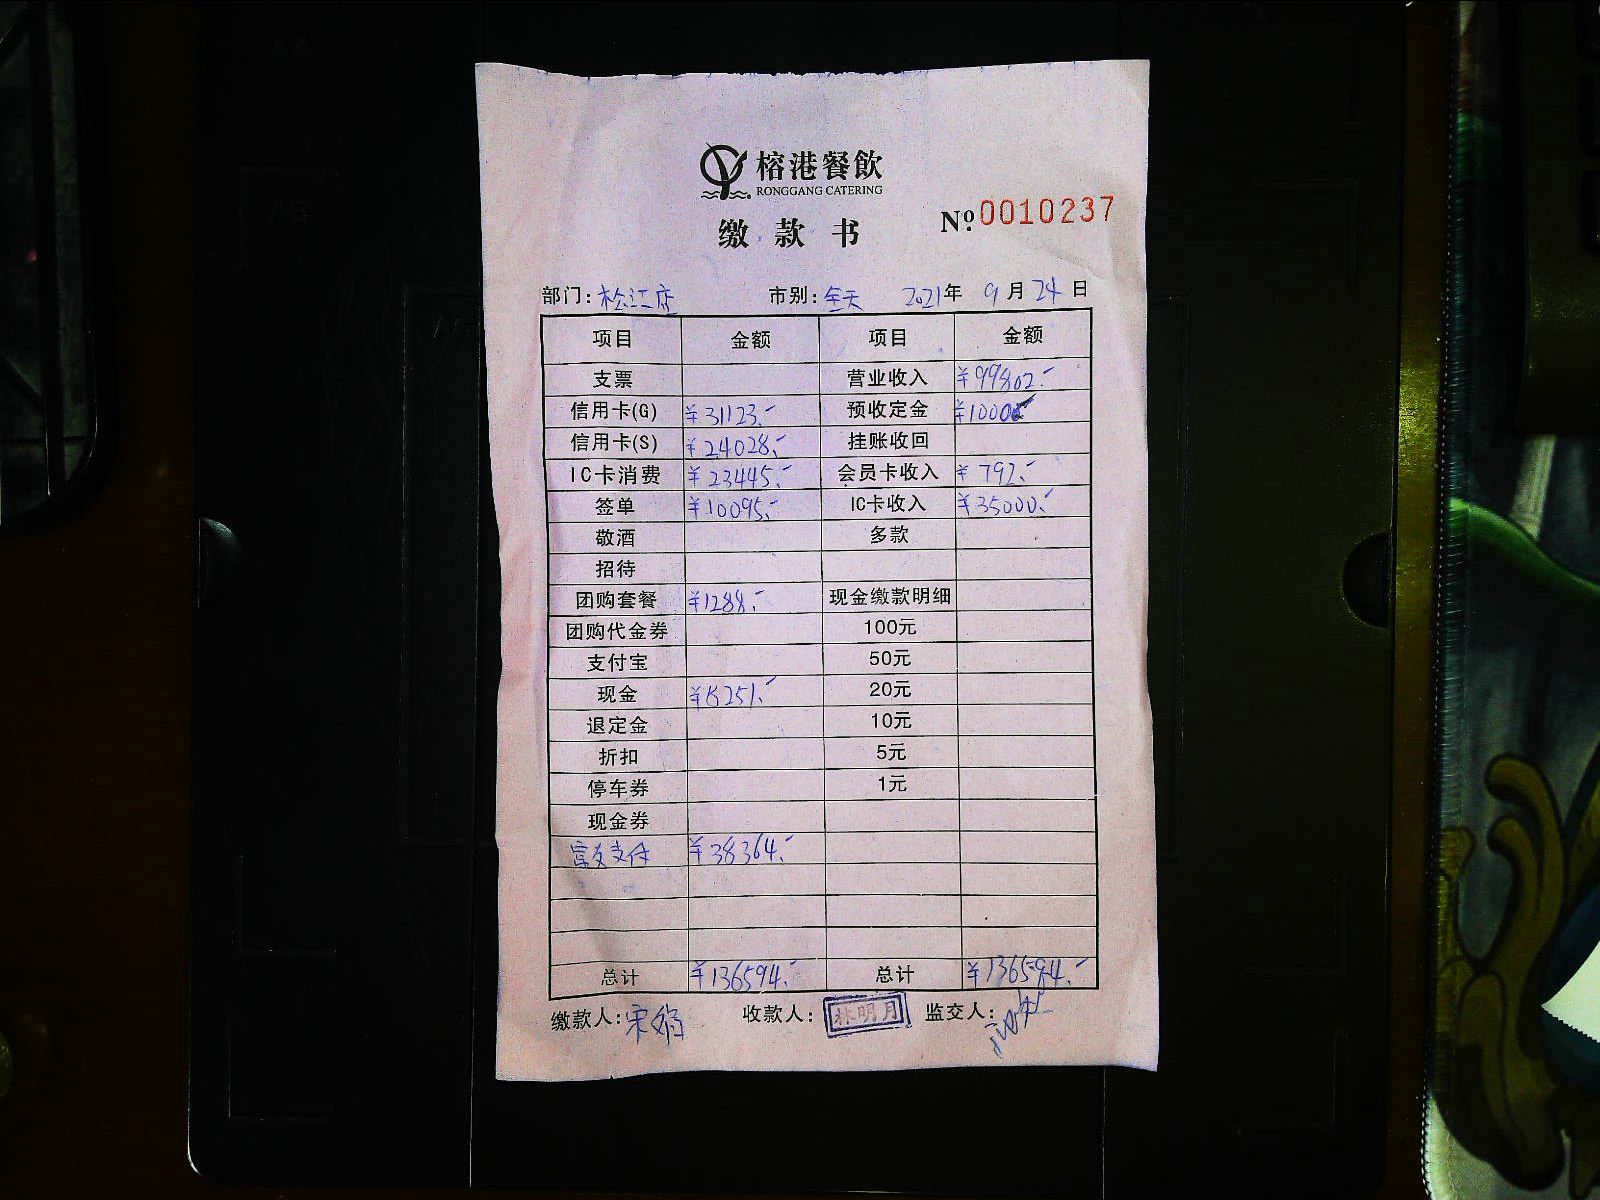 榕港餐飲
RONGGANG CATERING
缴款书
No.0010237
部门:松江店 市别:全天 2021年 9月24日
项目 金额 项目 金额
支票 营业收入 ¥99802.-
信用卡(G) ¥31123.- 预收定金 ¥1000.-
信用卡(S) ¥24028.- 挂账收回
IC卡消费 ¥23445.- 会员卡收入 ¥792.-
签单 ¥10095.- IC卡收入 ¥35000.-
敬酒 多款
招待
团购套餐 ¥1288.- 现金缴款明细
团购代金券 100元
支付宝 50元
现金 ¥8251.- 20元
退定金 10元
折扣 5元
停车券 1元
现金券
富友支付 ¥38364.-
总计 ¥136594.- 总计 ¥136594.-
缴款人:宋娟 收款人:林明月 监交人: